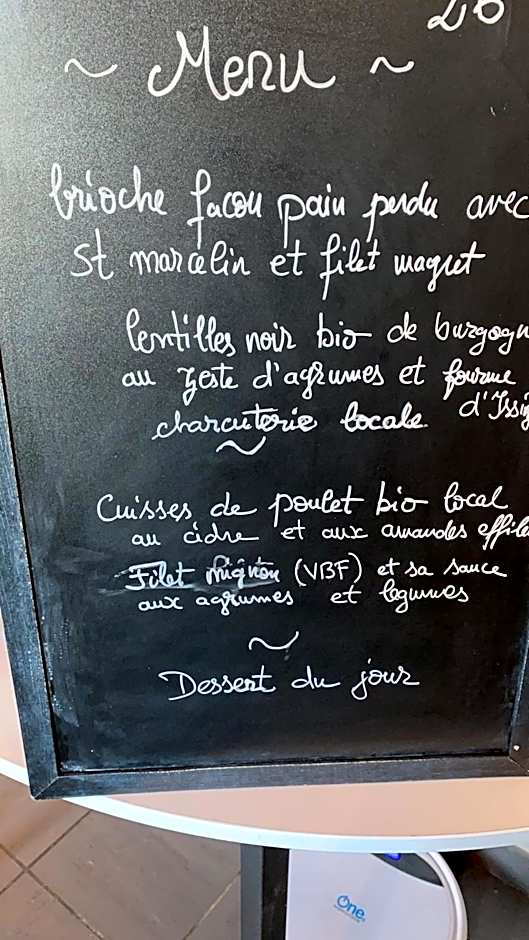 26
~ Menu ~
brioche facon pain perdu avec
st marcelin et filet magret
lentilles noir bio de burgogn
au zeste d'agrumes et fourme
d'Issi
charcuterie locale
~
Cuisses de poulet bio local
au cidre et aux amandes effil
Filet mignon (VBF) et sa sauce
aux agrumes et legumes
~
Dessert du jour
One